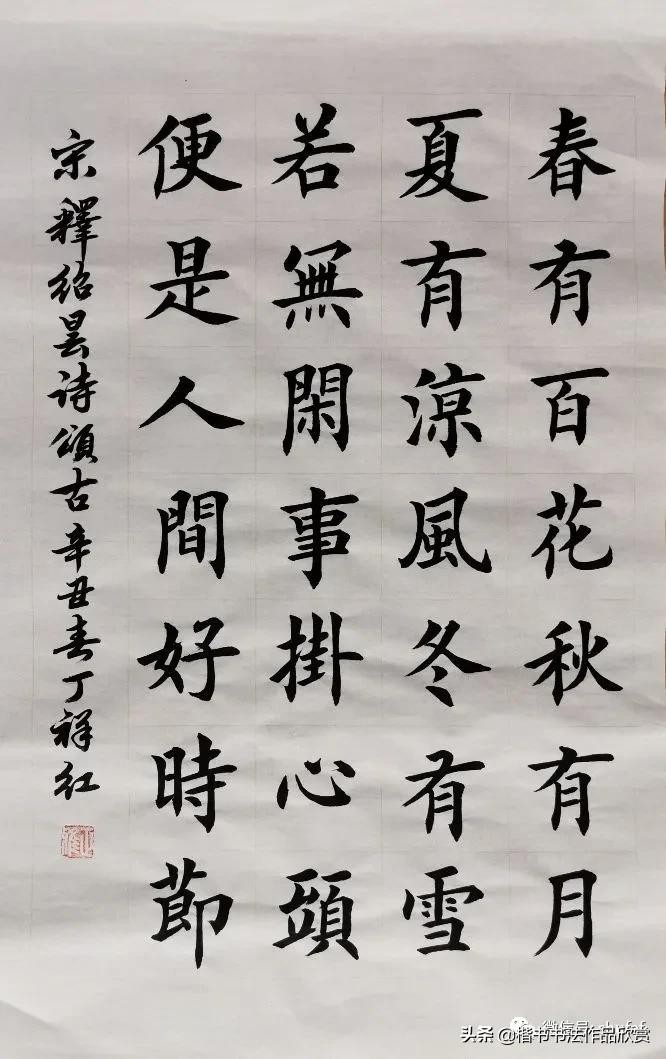 春有百花秋有月
夏有涼風冬有雪
若無閑事掛心頭
便是人間好時節
宗釋紹曇詩頌古辛丑春丁祥红
头条@楷书书法作品欣赏